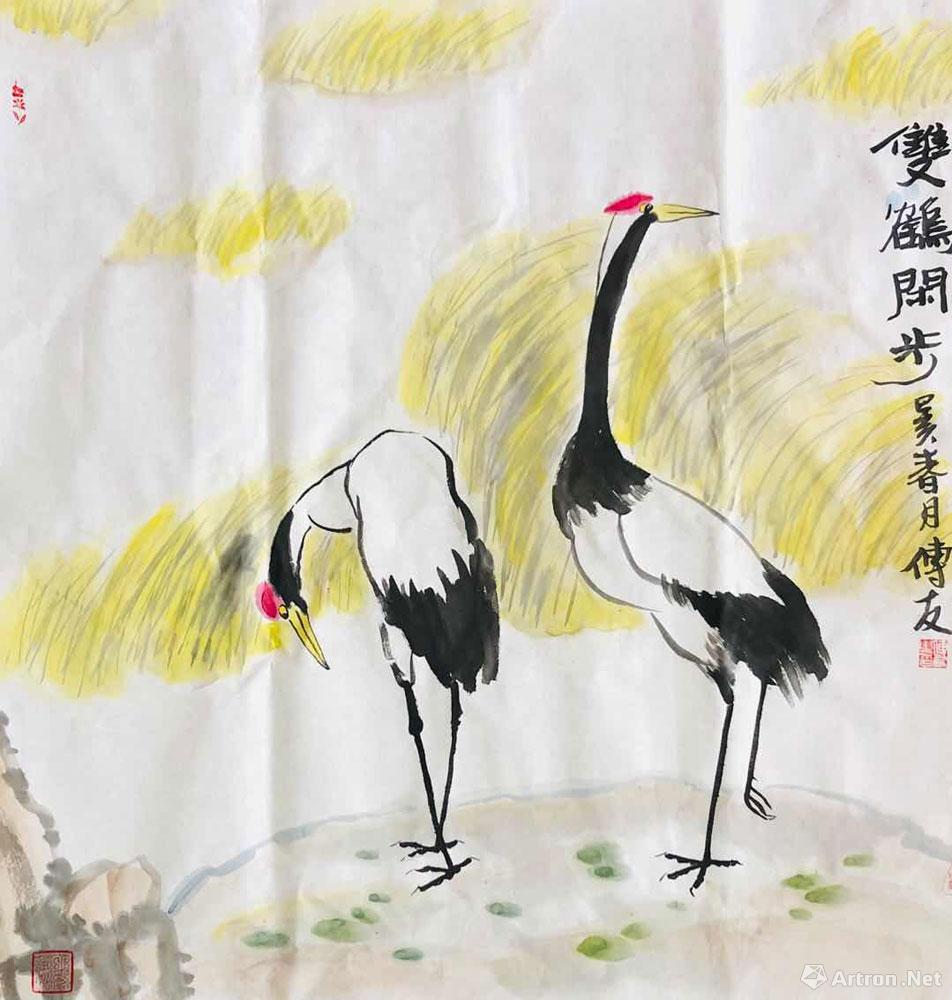 雙鶴閑步吳春月傅友
Artron.Net